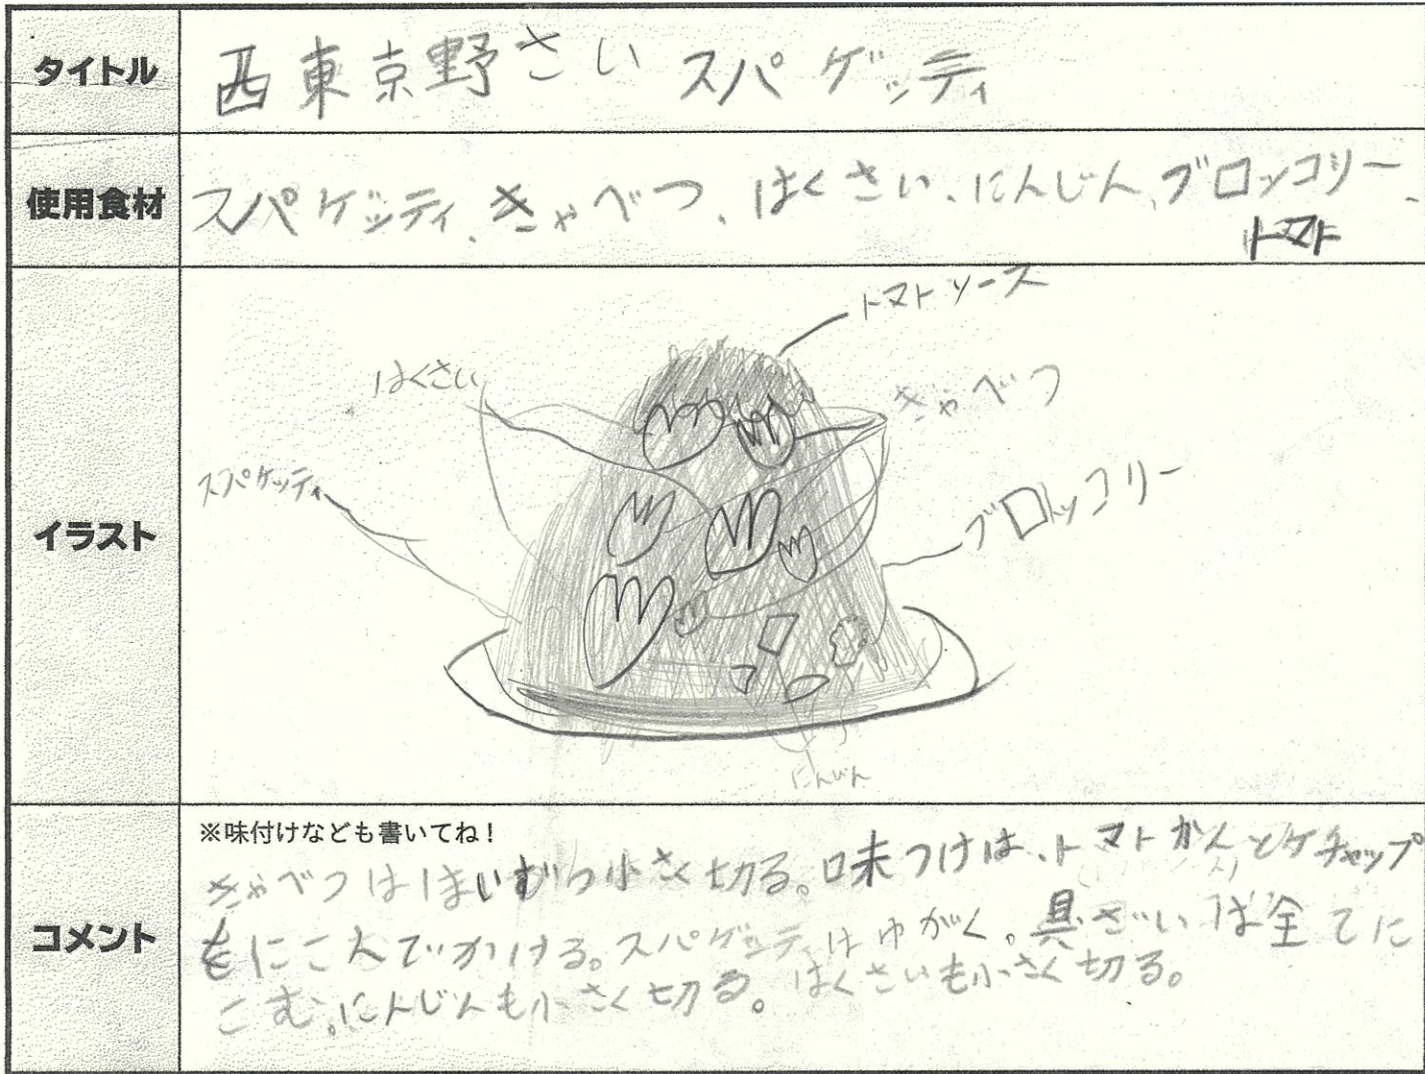 タイトル
西東京野さい スパゲッティ
使用食材
スパゲッティ、きゃべつ、はくさい、にんじん、ブロッコリー、
トマト
イラスト
トマトソース
はくさい
きゃべつ
スパゲッティ
ブロッコリー
にんじん
コメント
※味付けなども書いてね！
きゃべつは 小さく切る。味つけは、トマトかんとケチャップ
をにこんでかける。スパゲッティはゆがく。具ざいは全てに
こむ。にんじんも小さく切る。はくさいも小さく切る。